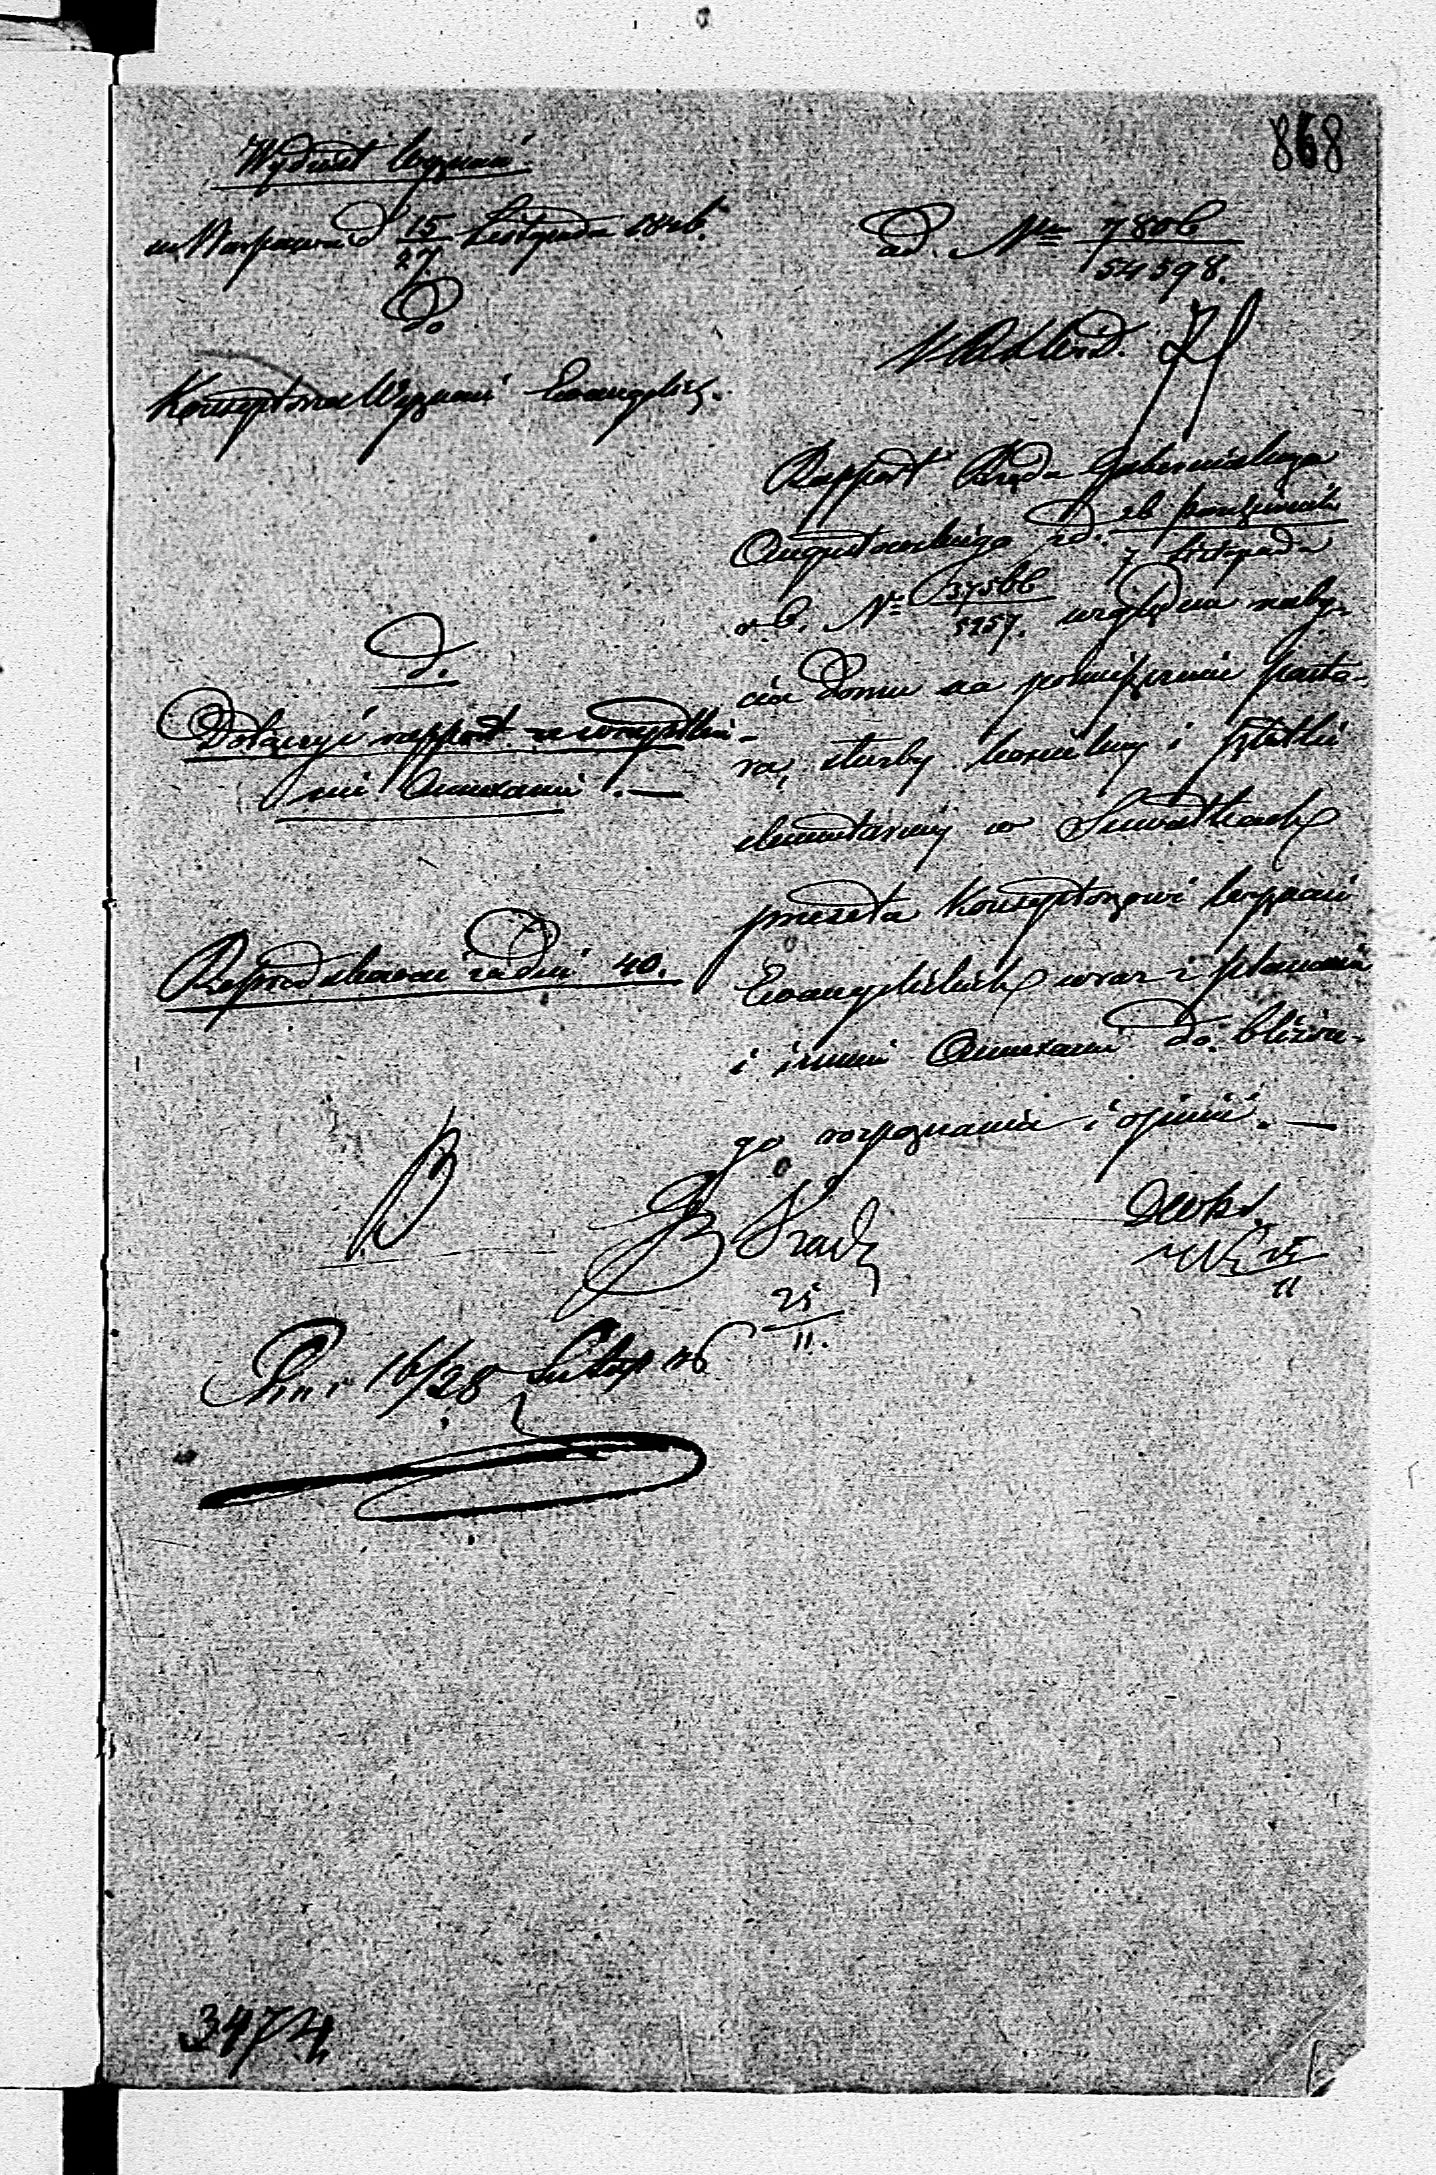 868
Wydział Wyznań.
w Warszawie d. 15/27 Listopada 1846.
Do
Konsystorza Wyznań Ewangelic.
ad. Nrm 7806/54598.
Rapport Rządu Gubernialnego
Augustowskiego z d. 26 Października/7 Listopada
r. b. Nr 37566/5257. względem naby-
cia Domu na pomieszczenie pasto-
ra, służby kościelnej i szkółki
elementarnej w Suwałkach
przeseła Konsystorzowi Wyznań
Ewangelickich wraz z planami
i innemi Annexami do bliższe-
go rozpoznania i opinii.
d.
Dołączyć rapport ze wszystkie-
mi Annexami.
Reprodukować za dni 40.
25/11
25/11.
16/28 Listop 46
3474